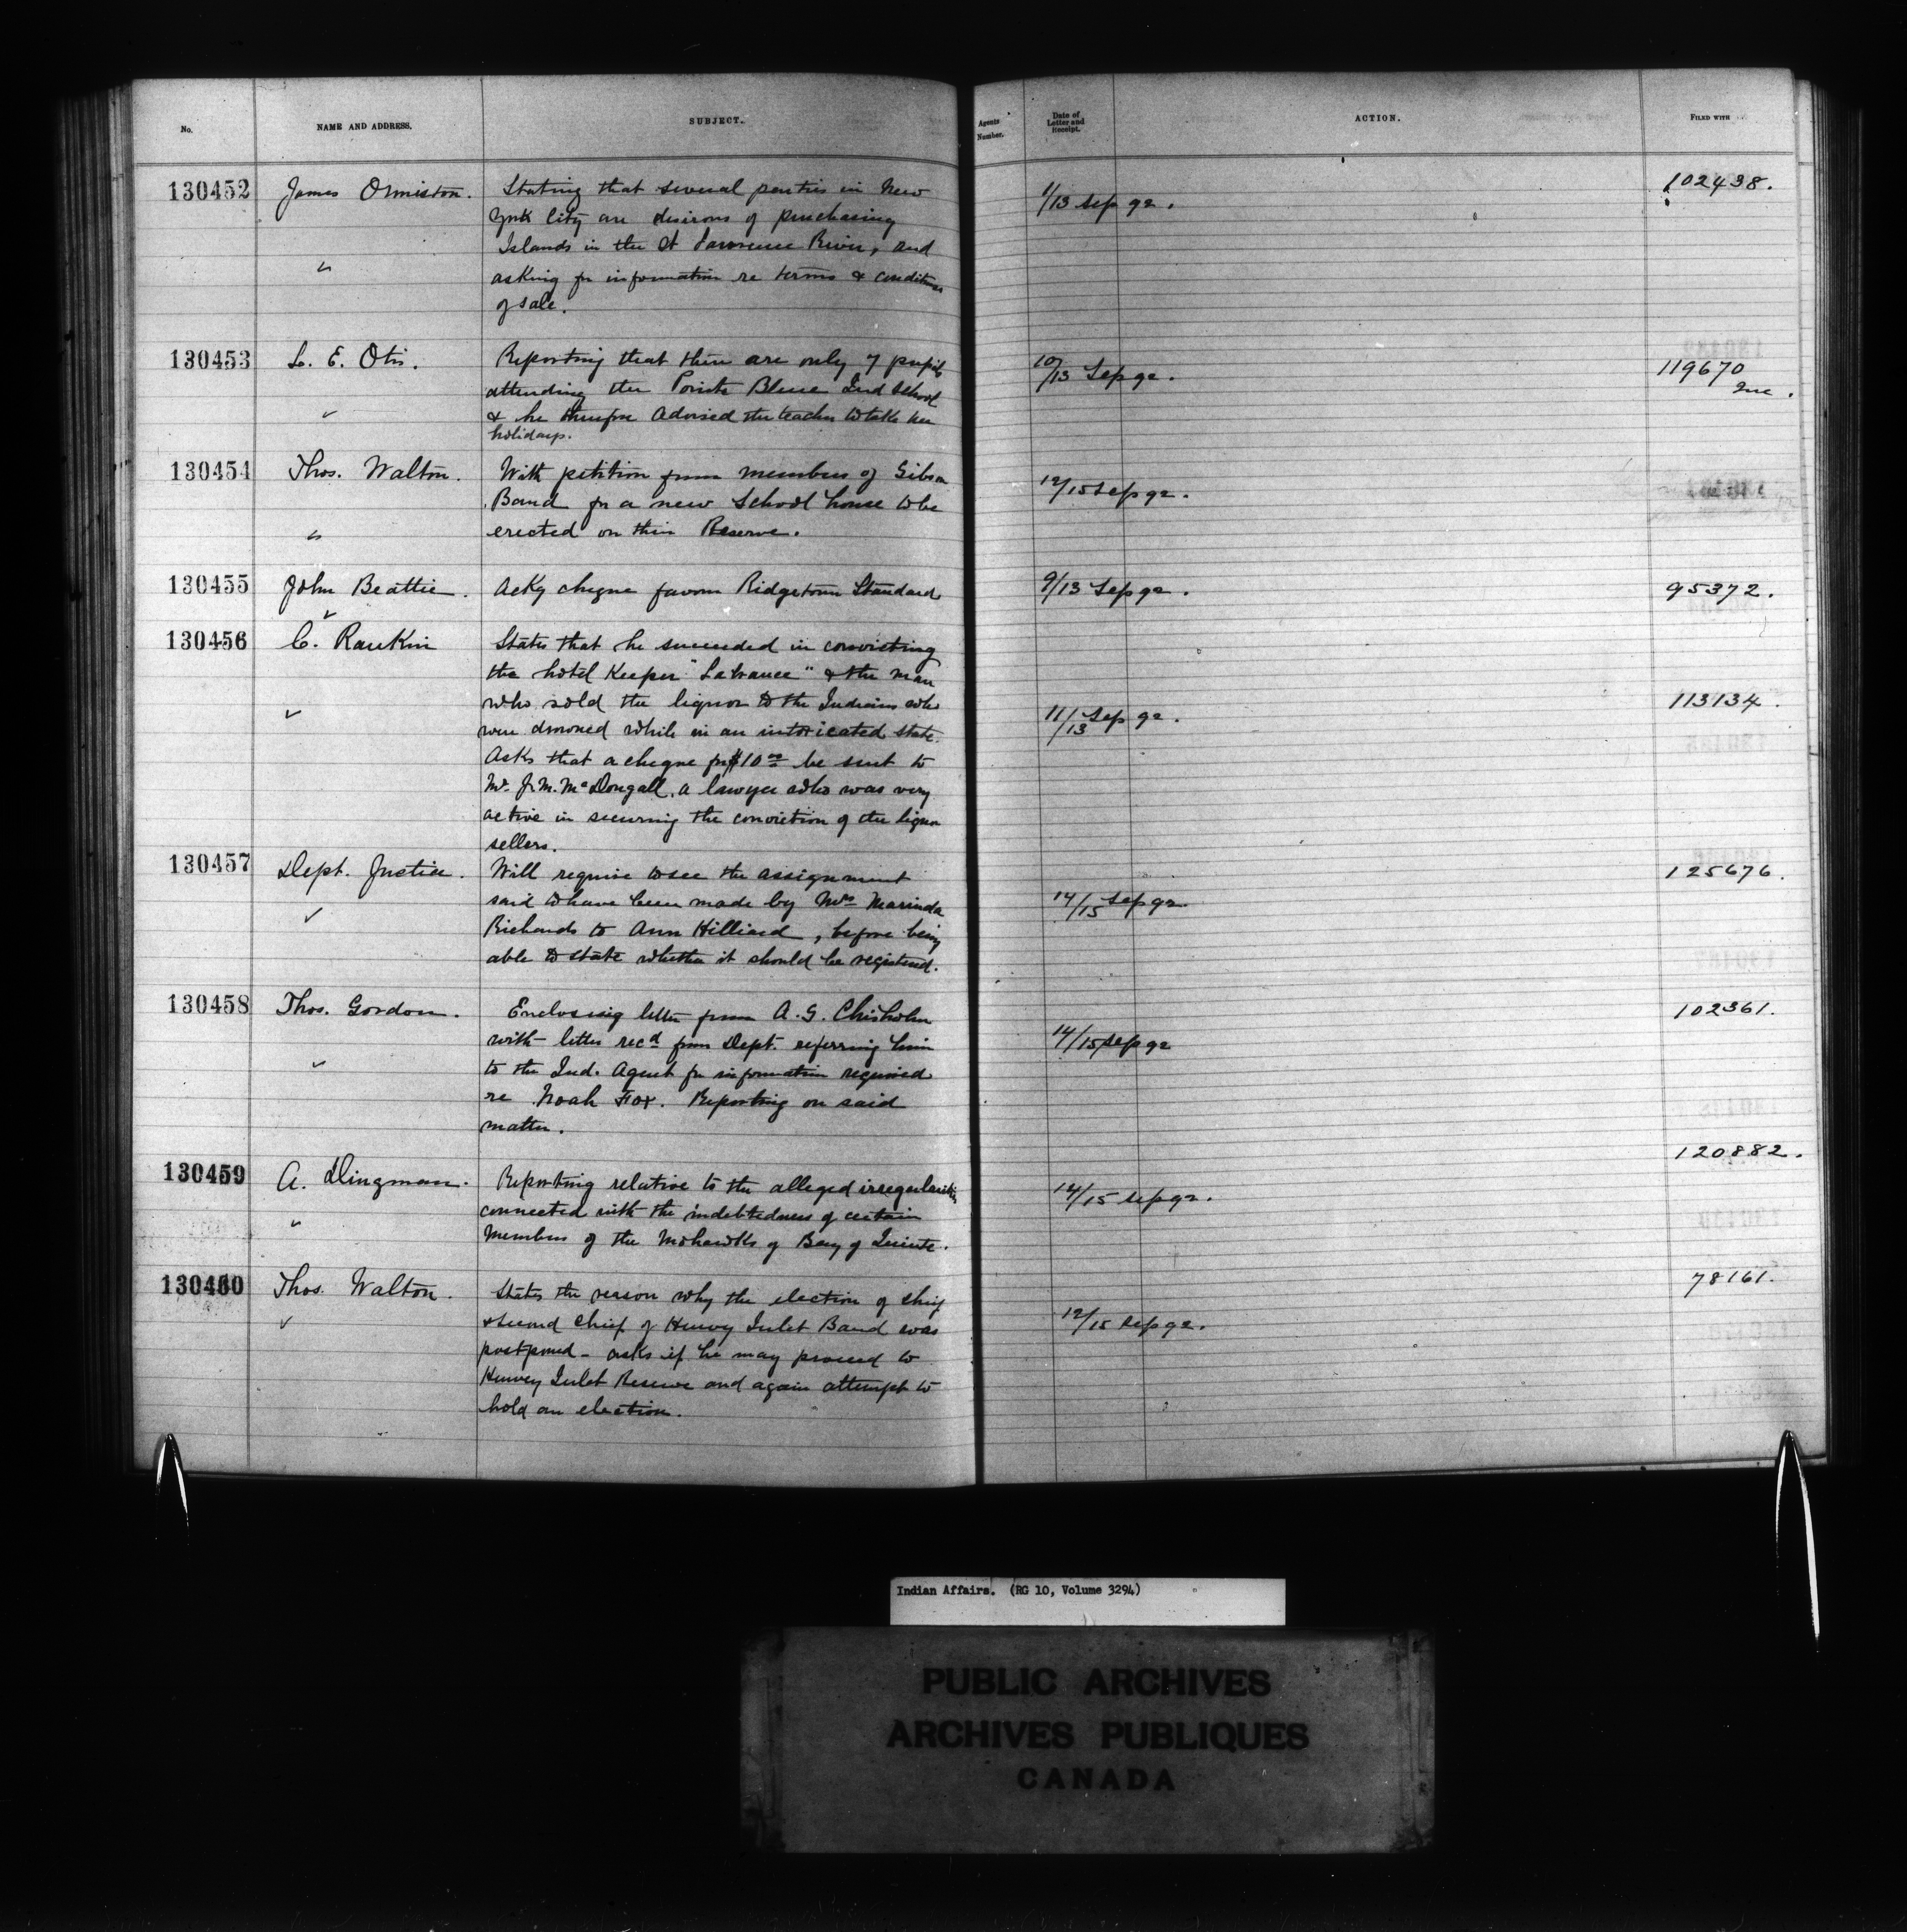 No.
NAME AND ADDRESS.
SUBJECT.
Agents Number.
Date of Letter and Receipt.
ACTION.
FILED WITH
130452 James Ormiston. Stating that several parties in New 1/13 Sep 92. 102438.
York City are desirous of purchasing
Islands in the St Lawrence River, and
asking for information re terms & conditions
of sale.
130453 L. E. Otis. Reporting that there are only 7 pupils 10/13 Sep 92. 119670
attending the Pointe Bleue Ind School
& he therefore advised the teacher to take her
holidays.
130454 Thos. Walton. With petition from members of Gibson 12/15 Sep 92.
Band for a new School house to be
erected on their Reserve.
130455 John Beattie. Ackg cheque favour Ridgetown Standard 9/13 Sep 92. 95372.
130456 C. Rankin States that he succeeded in convicting 11/13 Sep 92. 113134.
the hotel Keeper "Lafrance" & the man
who sold the liquor to the Indians who
were drowned while in an intoxicated state.
Asks that a cheque for $10 00 be sent to
Mr. J. M. McDougall, a lawyer who was very
active in securing the conviction of the liquor
sellers.
130457 Dept. Justice. Will require to see the assignment 14/15 Sep 92. 125676.
said to have been made by Mrs Marinda
Richards to Ann Hilliard, before being
able to state whether it should be registered.
130458 Thos. Gordon. Enclosing letter from A. G. Chisholm 14/15 Sep 92 102361.
with letter recd from Dept. referring him
to the Ind. Agent for information required
re Noah Fox. Reporting on said
matter.
130459 A. Dingman. Reporting relative to the alleged irregularities 14/15 Sep 92. 120882.
connected with the indebtedness of certain
Members of the Mohawks of Bay of Quinte.
130460 Thos. Walton. States the reason why the election of chief 12/15 Sep 92. 78161.
& second Chief of Henvey Inlet Band was
postponed - asks if he may proceed to
Henvey Inlet Reserve and again attempt to
hold an election.
Indian Affairs. (RG 10, Volume 3294)
PUBLIC ARCHIVES
ARCHIVES PUBLIQUES
CANADA